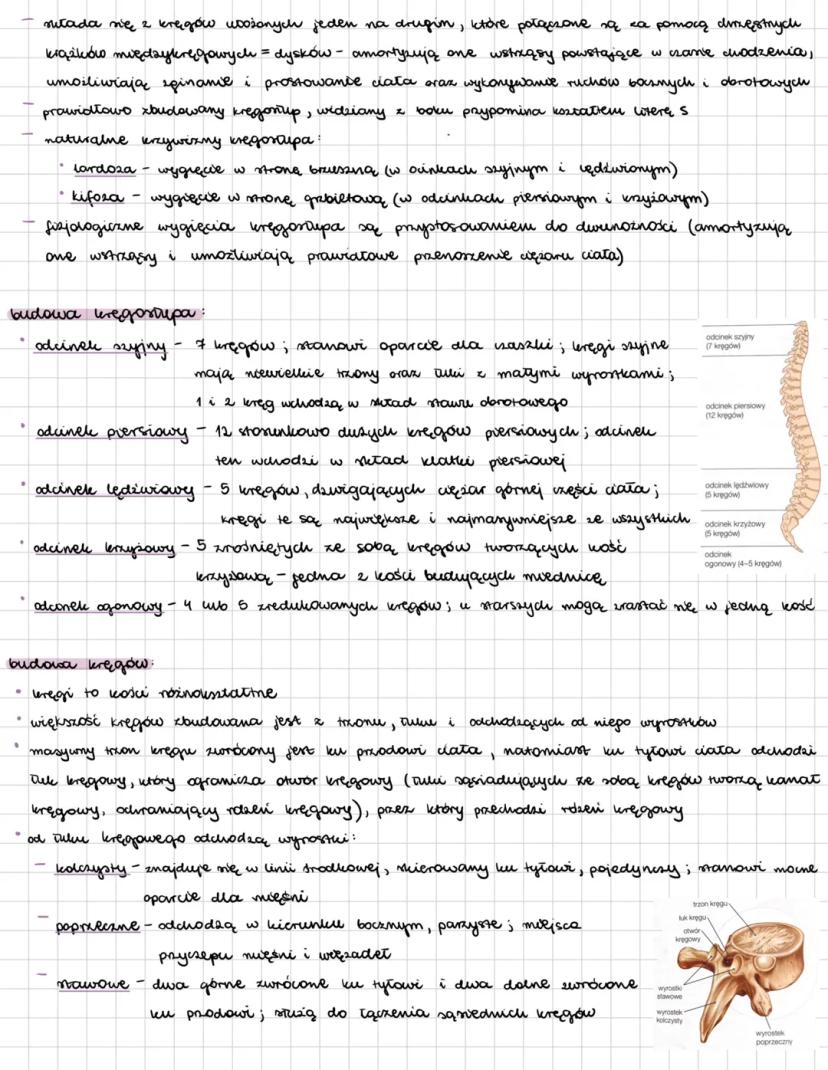 - składa się z kręgów ułożonych jeden na drugim, które połączone są za pomocą chrzęstnych
krążków międzykręgowych = dysków - amortyzują one wstrząsy powstające w czasie chodzenia,
umożliwiają zginanie i prostowanie ciała oraz wykonywanie ruchów bocznych i obrotowych
- prawidłowo zbudowany kręgosłup, widziany z boku przypomina kształtem literę S
- naturalne krzywizny kręgosłupa:
• lordoza - wygięcie w stronę brzuszną (w ocinkach szyjnym i lędźwionym)
• kifoza - wygięcie w stronę grzbietową (w odcinkach piersiowym i krzyżowym)
- fizjologiczne wygięcia kręgosłupa są przystosowaniem do dwunożności (amortyzują
one wstrząsy i umożliwiają prawidłowe przenoszenie ciężaru ciała)
budowa kręgosłupa:
• odcinek szyjny - 7 kręgów; stanowi oparcie dla czaszki; kręgi szyjne
mają niewielkie trzony oraz łuki z małymi wyrostkami;
1 i 2 kręg wchodzą w skład stawu obrotowego
• odcinek piersiowy - 12 stosunkowo dużych kręgów piersiowych; odcinek
ten wchodzi w skład klatki piersiowej
• odcinek lędźwiowy - 5 kręgów, dźwigających ciężar górnej części ciała;
kręgi te są największe i najmasywniejsze ze wszystkich
• odcinek krzyżowy - 5 zrośniętych ze sobą kręgów tworzących kość
krzyżową - jedna z kości budujących miednicę
• odcinek ogonowy - 4 lub 5 zredukowanych kręgów; u starszych mogą zrastać się w jedną kość
odcinek szyjny
(7 kręgów)
odcinek piersiowy
(12 kręgów)
odcinek lędźwiowy
(5 kręgów)
odcinek krzyżowy
(5 kręgów)
odcinek
ogonowy (4–5 kręgów)
budowa kręgów:
• kręgi to kości różnokształtne
• większość kręgów zbudowana jest z trzonu, łuku i odchodzących od niego wyrostków
• masywny trzon kręgu zwrócony jest ku przodowi ciała, natomiast ku tyłowi ciała odchodzi
łuk kręgowy, który ogranicza otwór kręgowy (łuki sąsiadujących ze sobą kręgów tworzą kanał
kręgowy, ochraniający rdzeń kręgowy), przez który przechodzi rdzeń kręgowy
• od łuku kręgowego odchodzą wyrostki:
- kolczysty - znajduje się w linii środkowej, skierowany ku tyłowi, pojedynczy; stanowi mocne
oparcie dla mięśni
- poprzeczne - odchodzą w kierunku bocznym, parzyste; miejsca
przyczepu mięśni i więzadeł
- stawowe - dwa górne zwrócone ku tyłowi i dwa dolne zwrócone
ku przodowi; służą do łączenia sąsiednich kręgów
trzon kręgu
łuk kręgu
otwór
kręgowy
wyrostki
stawowe
wyrostek
kolczysty
wyrostek
poprzeczny